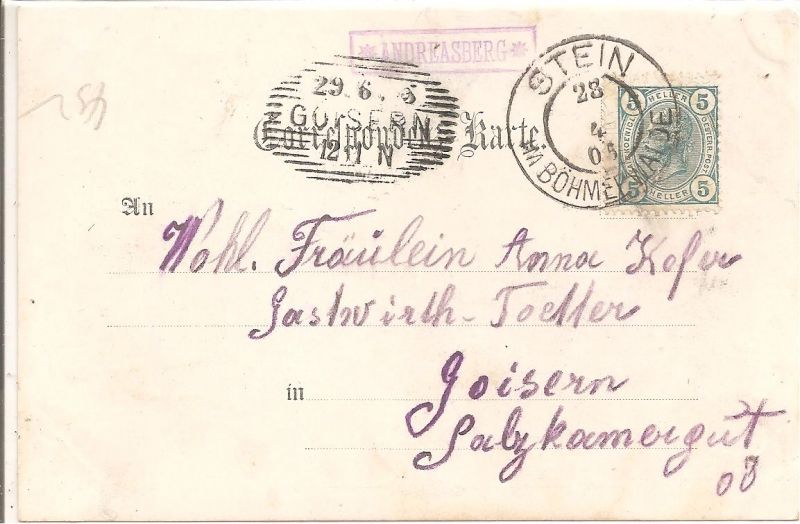 * ANDREASBERG *
29.6. 5
GOISERN
12 11 N
STEIN
28
4
05
IM BÖHMERWALDE
5 HELLER 5
5 HELLER 5
Correspondenz-Karte.
An
Wohl. Fräulein Anna Kofer
Gastwirth-Toctter
in Goisern
Salzkamergut